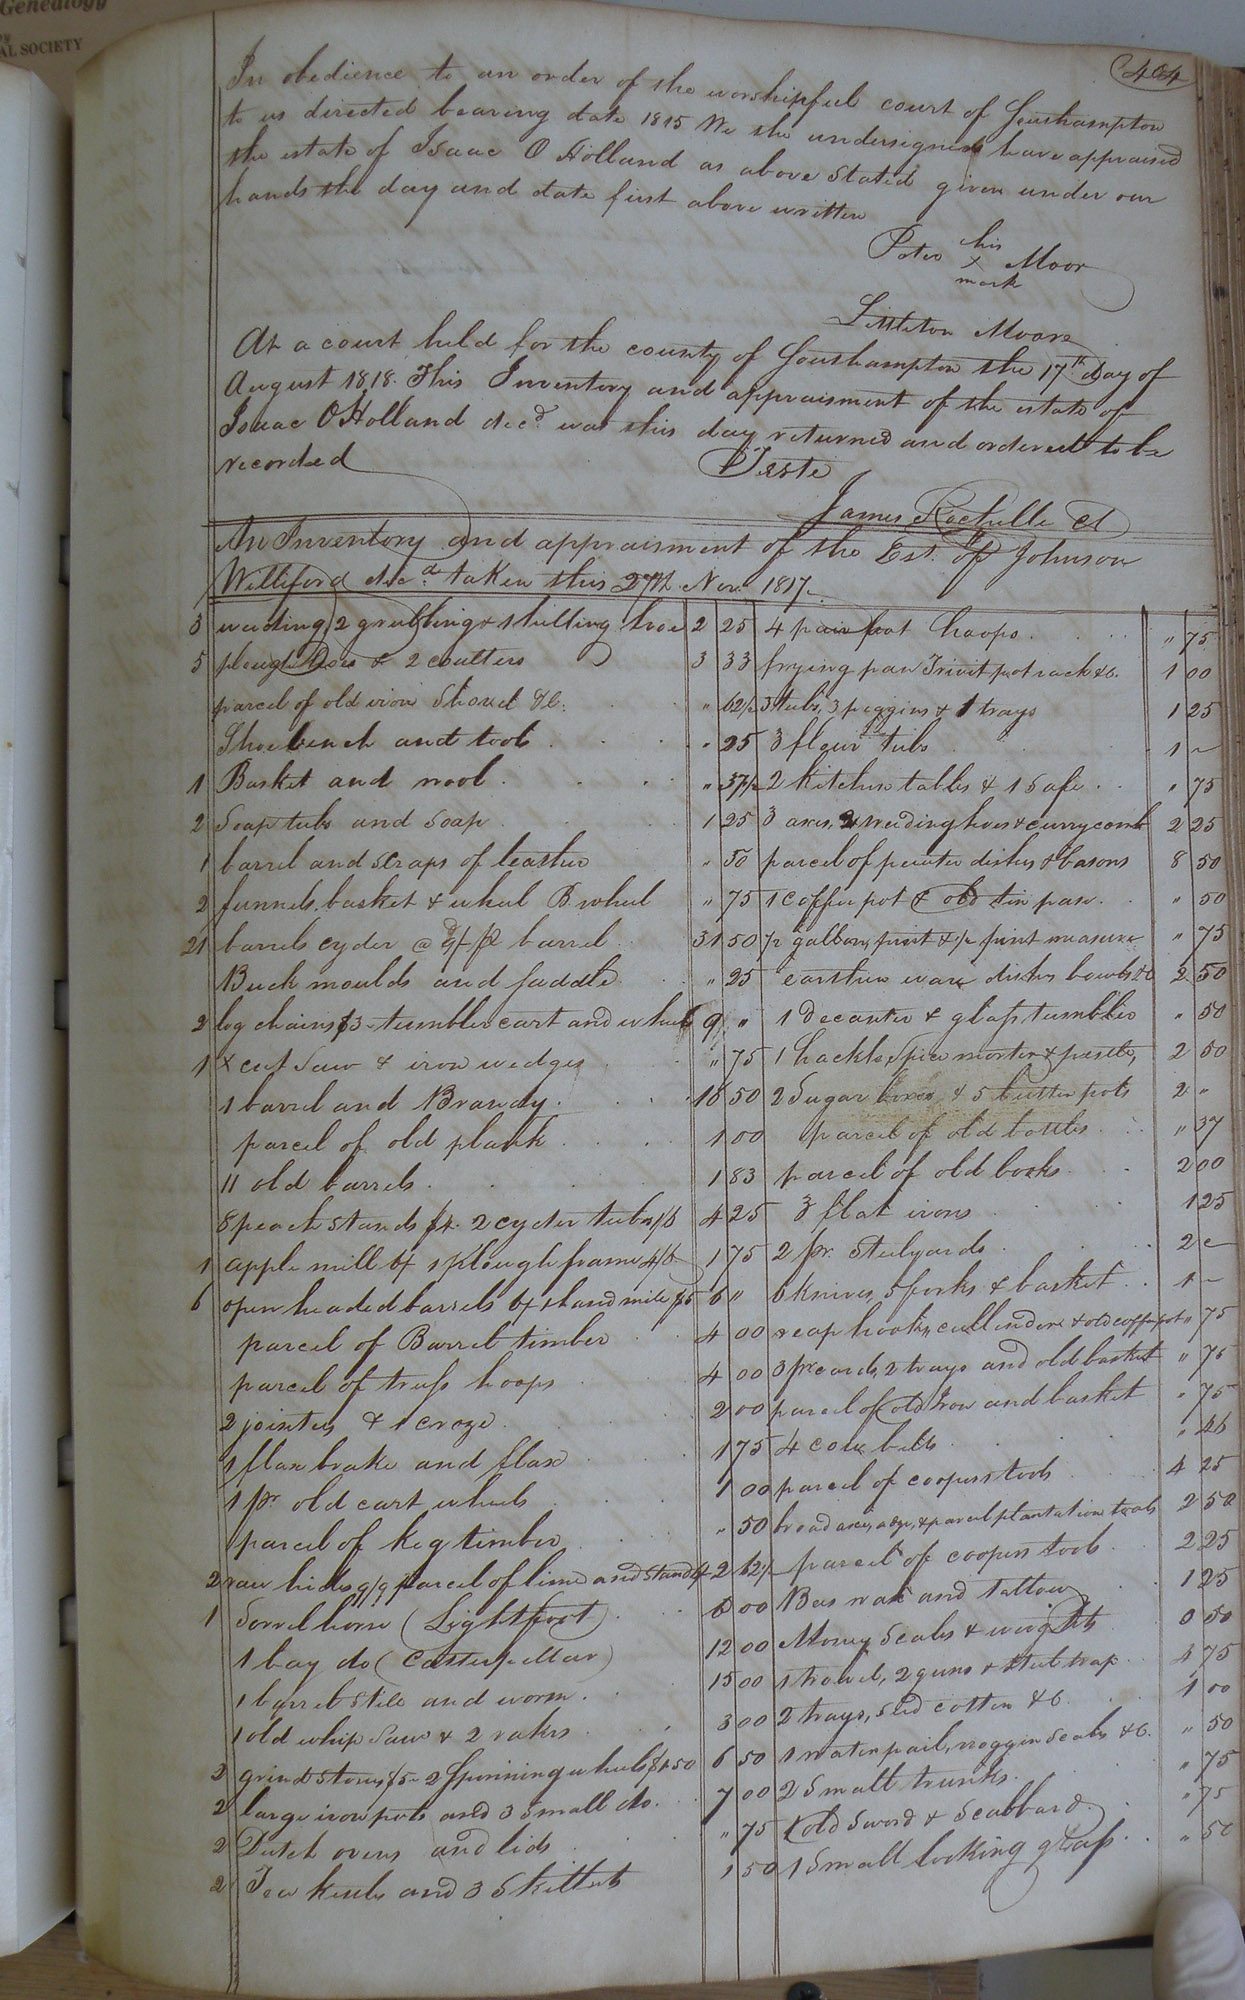 Genealogy
AL SOCIETY
404
In obedience to an order of the worshipful court of Southampton
to us directed bearing date 1815 We the undersigned have appraised
the estate of Isaac O Holland as above stated given under our
hands the day and date first above written
his
Peter x Moor
mark
Littleton Moore
At a court held for the county of Southampton the 17th Day of
August 1818. This Inventory and appraisment of the estate of
Isaac O Holland decd was this day returned and ordered to be
recorded
Teste
James Rochelle Cl
An Inventory and appraisment of the Est. of Johnson
Williford decd taken this 27th Nov. 1817
3 weeding, 2 grubbing & 1 hilling hoe 2 25
5 plough hoes & 2 coulters 3 33
parcel of old iron Shovel &c. " 62½
Shoe bench and tools " 25
1 Basket and wool " 37½
2 Soap tubs and Soap 1 25
1 barrel and scraps of leather " 50
2 funnels, basket & wheel Barrow " 75
21 barrels cyder @ 9/ pr barrel 31 50
Buck moulds and paddle " 25
2 log chains $3 tumbler cart and wheels 9 "
1 x cut saw & iron wedges " 75
1 barrel and Brandy 16 50
parcel of old plank 1 00
11 old barrels 1 83
8 peach stands $4. 2 cyder tubs 1/6 4 25
1 apple mill 6/ 1 plough frame 4/6 1 75
6 open headed barrels 6/ 1 hand mill $5 6 "
parcel of Barrel timber 4 00
parcel of truss hoops 4 00
2 jointers & 1 croze 2 00
1 flax brake and flax 1 75
1 pr. old cart wheels 1 00
parcel of keg timber " 50
2 raw hides 9/9 parcel of lime and stand 6/ 2 62½
1 Sorrel horse (Lightfoot) 6 00
1 bay do (Catterpellar) 12 00
1 barrel still and worm 15 00
1 old whip saw & 2 rakes 3 00
2 grind stones $5 2 Spinning wheels $1.50 6 50
2 large iron pots and 3 small do. 7 00
2 Dutch ovens and lids " 75
2 Tea kettles and 3 Skillets 1 50
4 pair pot hoops " 75
frying pan Trivit pot rack &c. 1 00
3 tubs, 3 piggins & 1 trays 1 25
3 flour tubs 1 ~
2 kitchen tables & 1 Safe " 75
3 axes, 2 weeding hoes & curry comb 2 25
parcel of pewter dishes & basons 8 50
1 Coffee pot & old tin pan " 50
½ gallon, pint & ½ pint measure " 75
earthen ware dishes bowls &c 2 50
1 decanter & glass tumbler " 50
1 hackle, Spice morter & pestle, 2 50
2 Sugar boxes & 5 butter pots 2 "
parcel of old bottles " 37
parcel of old books 2 00
3 flat irons 1 25
2 pr. steelyards 2 ~
6 knives, 5 forks & basket 1 ~
reap hooks, cullenders & old coffee pot " 75
3 pr cards, 2 trays and old basket " 75
parcel of old Iron and basket " 75
4 cow bells " 46
parcel of coopers tools 4 25
broad axes, adze, & parcel plantation tools 2 50
parcel of coopers tools 2 25
Bees wax and tallow 1 25
Money Scales & weights 0 50
1 trowel, 2 guns & steel trap 4 75
2 trays, seed cotton &c. 1 00
1 water pail, noggin Scales &c. " 50
2 Small trunks " 75
1 old Sword & Scabbard " 75
1 Small looking glass " 50